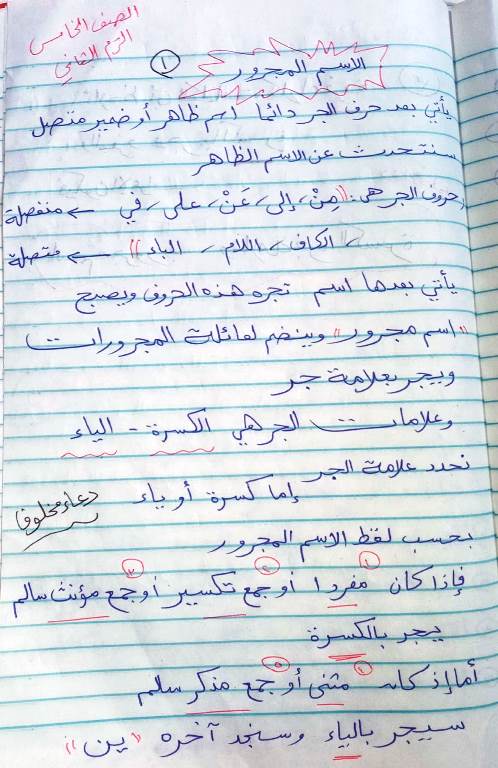 الصف الخامس
الترم الثاني
١
الاسم المجرور
يأتي بعد حرف الجر دائما اسم ظاهر أو ضمير متصل
سنتحدث عن الاسم الظاهر
حروف الجر هي: "مِنْ، إلى، عَنْ، على، في ← منفصلة
، الكاف، اللام، الباء" ← متصلة
يأتي بعدها اسم تجره هذه الحروف ويصبح
"اسم مجرور" وينضم لعائلة المجرورات
ويجر بعلامة جر
وعلامات الجر هي الكسرة - الياء
نحدد علامة الجر
إما كسرة أو ياء
دعاء مخلوف
بحسب لفظ الاسم المجرور
فإذا كان ١ مفردا أو ٢ جمع تكسير أو ٣ جمع مؤنث سالم
يجر بالكسرة
أما إذ كان ٤ مثنى أو ٥ جمع مذكر سالم
سيجر بالياء وسنجد آخره "ين"